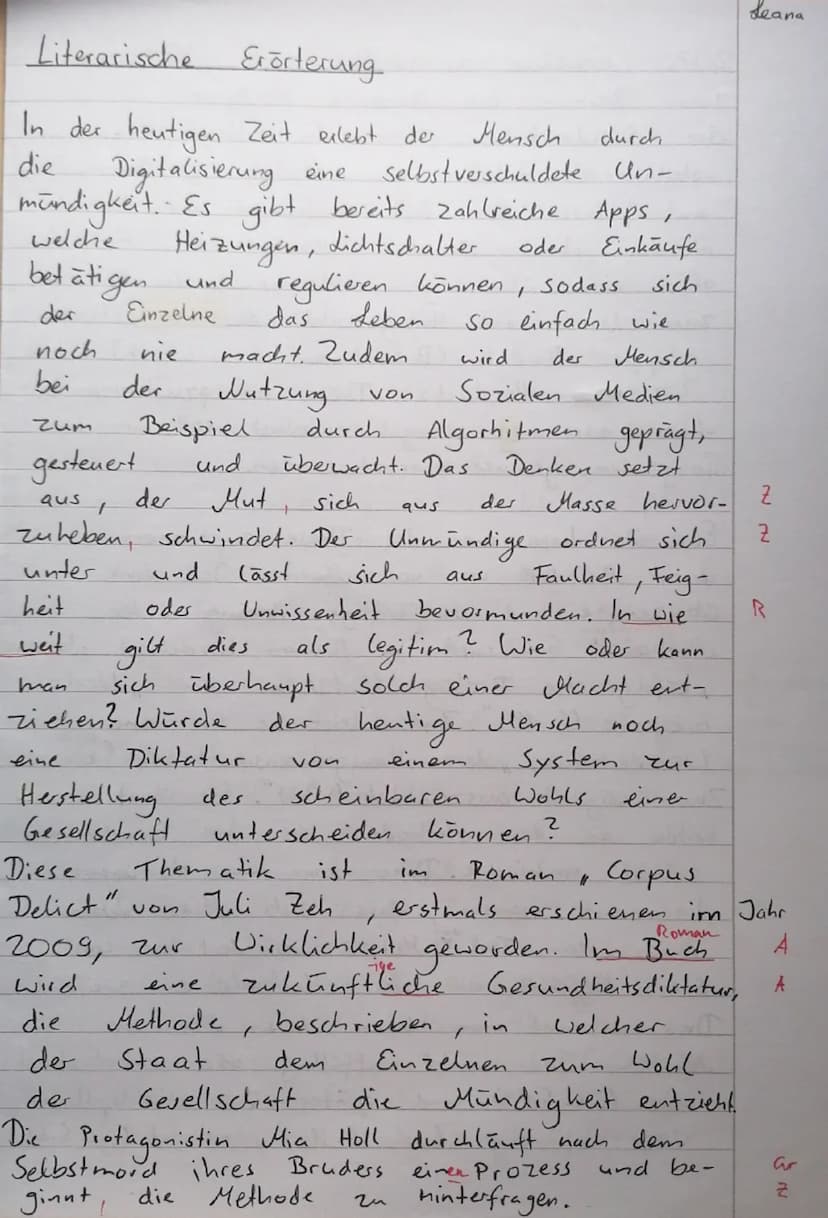 Leana
Literarische Erörterung
In der heutigen Zeit erlebt der Mensch durch
die Digitalisierung eine selbstverschuldete Un-
mündigkeit. Es gibt bereits zahlreiche Apps,
welche Heizungen, Lichtschalter oder Einkäufe
betätigen und regulieren können, sodass sich
der Einzelne das Leben so einfach wie
noch nie macht. Zudem wird der Mensch
bei der Nutzung von Sozialen Medien
zum Beispiel durch Algorhitmen geprägt,
gesteuert und überwacht. Das Denken setzt
aus, der Mut, sich aus der Masse hervor- Z
zuheben, schwindet. Der Unmündige ordnet sich Z
unter und lässt sich aus Faulheit, Feig-
heit oder Unwissenheit bevormunden. In wie R
weit gilt dies als legitim? Wie oder kann
man sich überhaupt solch einer Macht ent-
ziehen? Würde der heutige Mensch noch
eine Diktatur von einem System zur
Herstellung des scheinbaren Wohls einer
Gesellschaft unterscheiden können?
Diese Thematik ist im Roman „Corpus
Delict“ von Juli Zeh, erstmals erschienen im Jahr
Roman
2009, zur Wirklichkeit geworden. Im Buch A
ige
wird eine zukünftliche Gesundheitsdiktatur, A
die Methode, beschrieben, in welcher
der Staat dem Einzelnen zum Wohl
der Gesellschaft die Mündigkeit entzieht.
Die Protagonistin Mia Holl durchläuft nach dem
Selbstmord ihres Bruders einen Prozess und be- Gr
ginnt, die Methode zu hinterfragen. Z